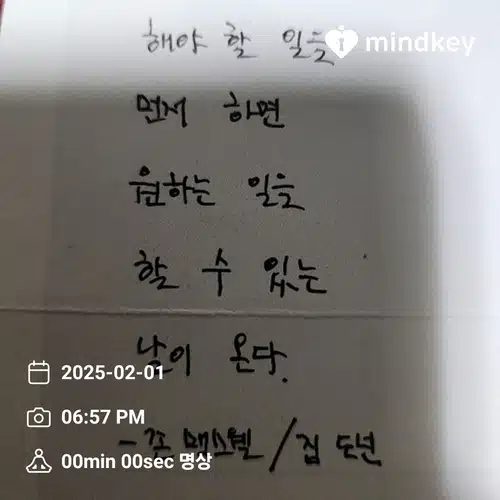 해야 할 일을
mindkey
먼저 하면
원하는 일을
할 수 있는
날이 온다.
2025-02-01
06:57 PM
- 존 맥스웰 / 집 도넌
00min 00sec 명상